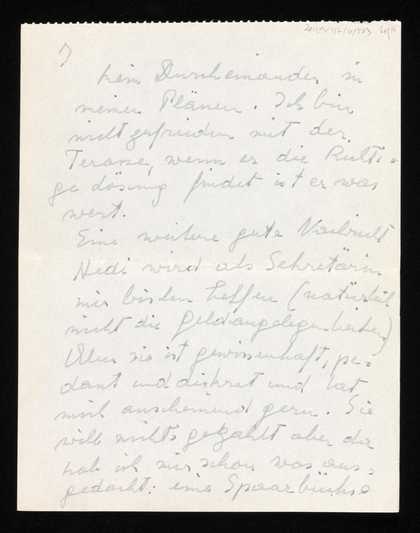 kein Durcheinander in
meinen Plänen. Ich bin
nicht zufrieden mit der
Terasse, wenn er die Richti=
ge Lösung findet ist er was
wert.
Eine weitere gute Nachricht
Hedi wird als Sekretärin
mir bisschen helfen (natürlich
nicht die geldangelegenheiten)
Aber sie ist gewissenhaft, pe=
dant und diskret und hat
mich anscheinend gern. Sie
will nichts gezahlt aber da
hab ich mir schon was aus=
gedacht: eine Spaarbüchse